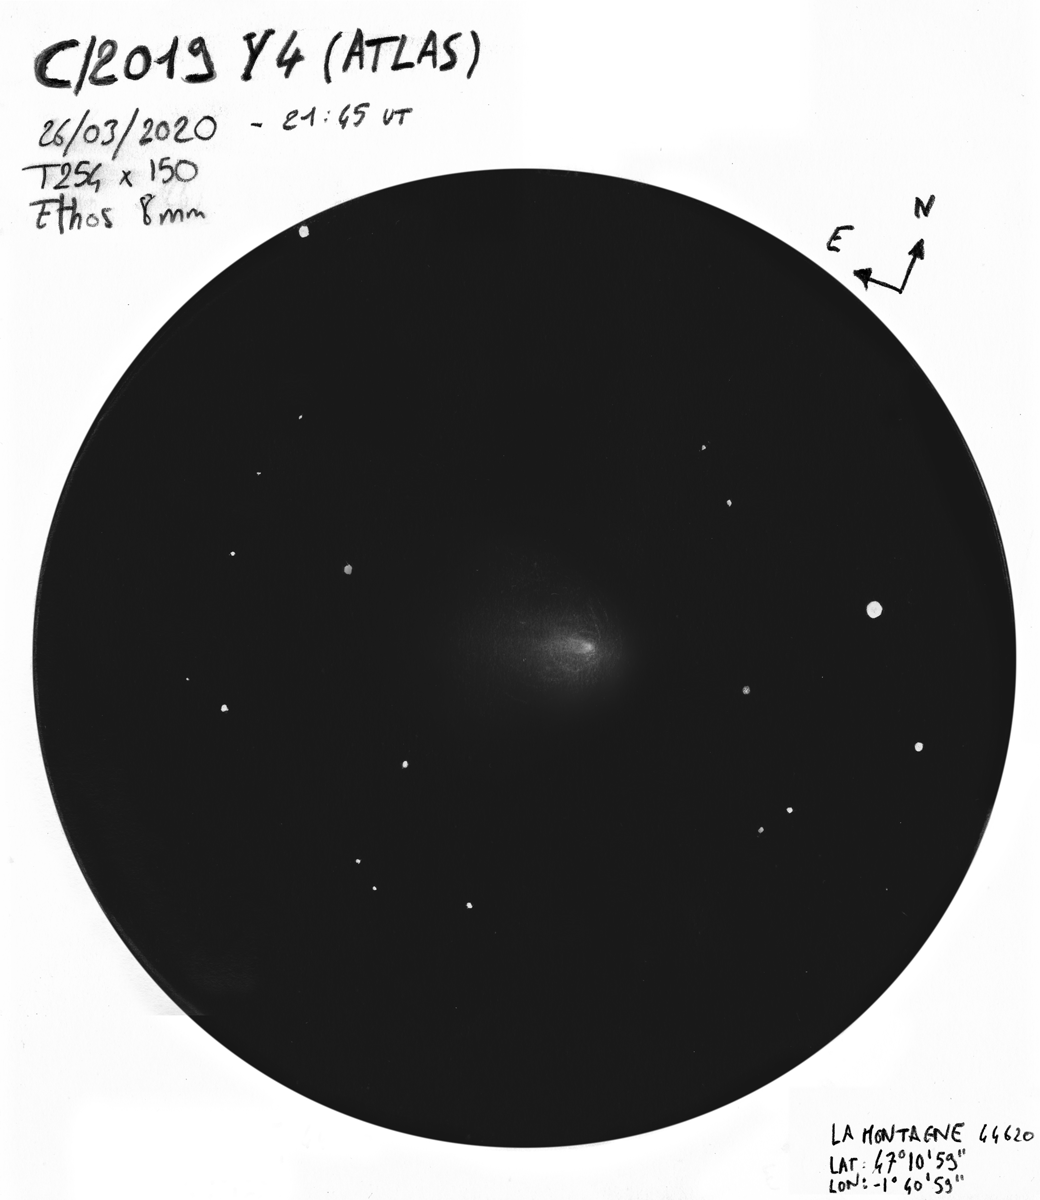 C/2019 Y4 (ATLAS)
26/03/2020 - 21:45 UT
T254 x 150
Ethos 8mm
N
E
LA MONTAGNE 44620
LAT: 47°10'59"
LON: -1°40'59"